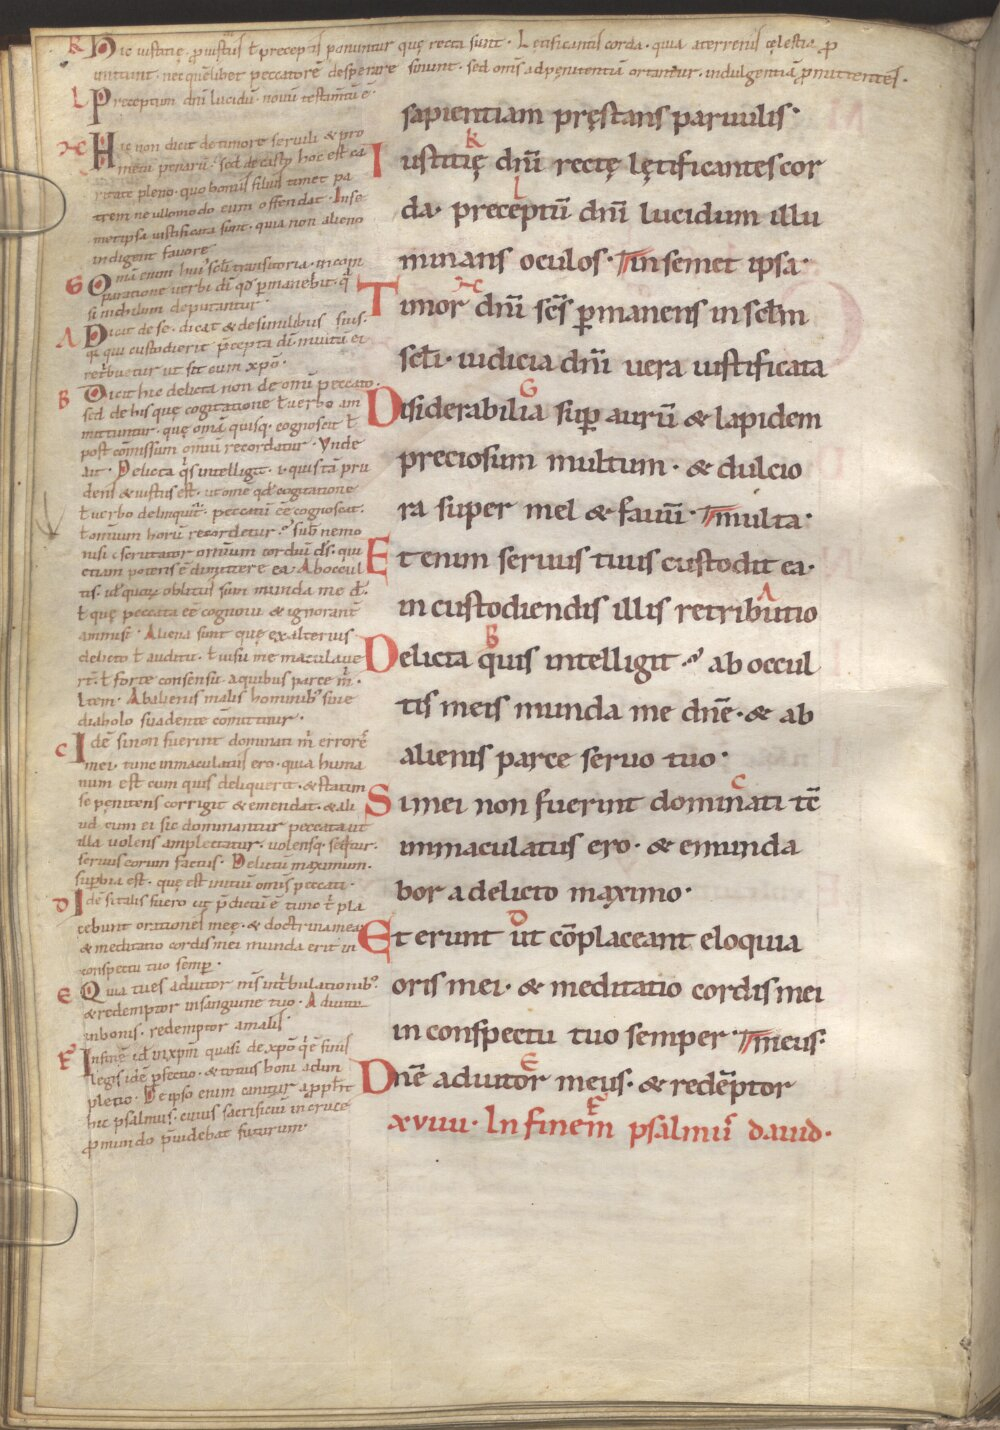 K Dic iustitię. p iustus ł preceptis ponuntur quę recta sunt. Lętificantes corda. quia a terrenis cęlestia p
mittunt. nec quelibet peccatorē desperare sinunt. sed om̄s ad pęnitentiam ortantur. indulgentiā promittentes.
L Preceptum dn̄i lucidū. nouū testam̄tū ē.
Hic non dicit de timore seruili & pro
metu pęnarū. sed de casto hoc est ca
ritate pleno. quo bonus filius timet pa
trem ne ullomodo eum offendat. In se
metipsa iustificata sunt. quia non alieno
indigent fauore
G Om̄a enim hui' scl̄i transitoria. in com
paratione uerbi dī qđ permanebit. q̄
si nichilum deputantur.
A Dicit de se. dicat & de similibus suis.
qui custodierit p̄cepta dī. inuitū ei
retbuetur ut sit cum xp̄o.
B Dicit hic delicta non de om̄i peccato.
sed de his quę cogitatione ł uerbo am
mittuntur. quę om̄ia quisq. cognoscit ł
post com̄issum om̄iuī recordatur. Unde
ait. Delicta q̄s intelligit. i. quis tā pru
dens & iustus est. ut om̄e qđ cogitatione
ł uerbo delinquit. peccatū eē cognoscat.
ł omnium horū recordetur. sub nemo
nisi scrutator omnium cordiū ds̄. qui
etiam poteris ē dimittere ea. Ab occul
tis. ul̄ quorū oblitus sum munda me dn̄e.
ł quę peccata eē cognoui & ignoranē
ammisi. Aliena sunt quę ex alterius
delicto ł auditu. ł uisu me maculaue
rī. ł forte consensu. a quibus parce m̄.
Item. Ab alienis malis hominib' siue
diabolo suadente comittitur.
C Idē si non fuerint dominati m̄ errorē
mei. tunc inmaculatus ero. quia huma
num est cum quis deliquerit. & statim
se pęnitens corrigit & emendat. & ali
ud cum ei sic dominantur peccata ut
illa uolens amplectatur. uolensq. sequitur.
seruus eorum factus. Delictū maximum.
supbia est. quę est initiū om̄is peccati.
D Idē si talis fuero ut p̄dictū ē tunc t̄ pla
cebunt orationes meę. & doctrina mea
& meditatio cordis mei munda erit in
conspectu tuo semp.
E Quia tu es adiutor m̄s in tbulationib'
& redemptor in sanguine tuo. Adiutor
in bonis. redemptor a malis.
F In finē id in xpm̄ quasi de xp̄o q̄ ē finis
legis idē pfectio. & totius boni adim
pletio. De ipso enim canitur a pph̄ta
hic psalmus. cuius sacrificiū in cruce
p mundo p̄uidebat futurum.
sapientiam pręstans paruulis.
K
Iustitię dn̄i rectę lętificantes cor
L
da. preceptū dn̄i lucidum illu
minans oculos. in semet ipsa.
Timor dn̄i sc̄s pmanens in sclm̄
scl̄i. iudicia dn̄i uera iustificata
G
Disiderabilia sup aurū & lapidem
preciosum multum. & dulcio
ra super mel & fauū. multa.
Et enim seruus tuus custodit ea.
A
in custodiendis illis retributio
B
Delicta quis intelligit. ab occul
tis meis munda me dn̄e. & ab
alienis parce seruo tuo.
C
Si mei non fuerint dominati tē
immaculatus ero. & emunda
bor a delicto maximo.
D
Et erunt ut cōplaceant eloquia
oris mei. & meditatio cordis mei
in conspectu tuo semper. meus.
E
Dn̄e adiutor meus. & redēptor
F
xviii. In finem psalmū dauid.